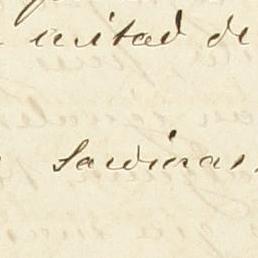 mitad de
Sardinas